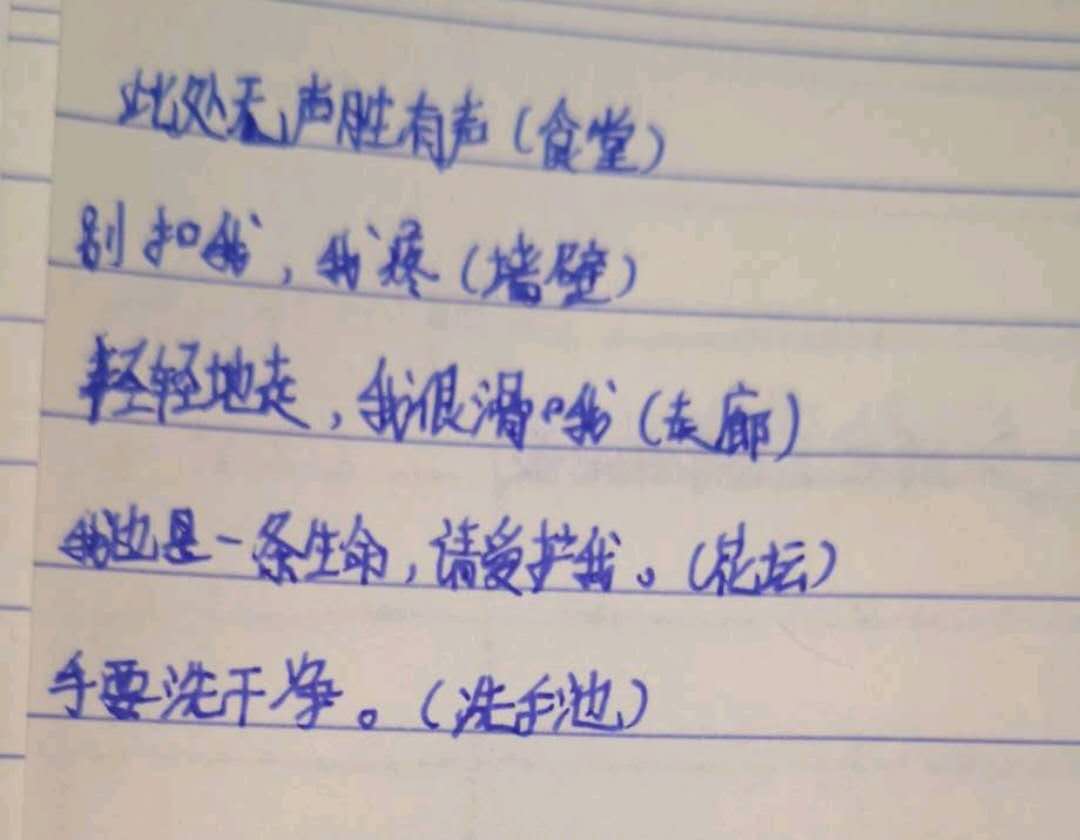 此处无声胜有声（食堂）
别扣我，我疼（墙壁）
轻轻地走，我很滑。我（走廊）
我也是一条生命，请爱护我。（花坛）
手要洗干净。（洗手池）